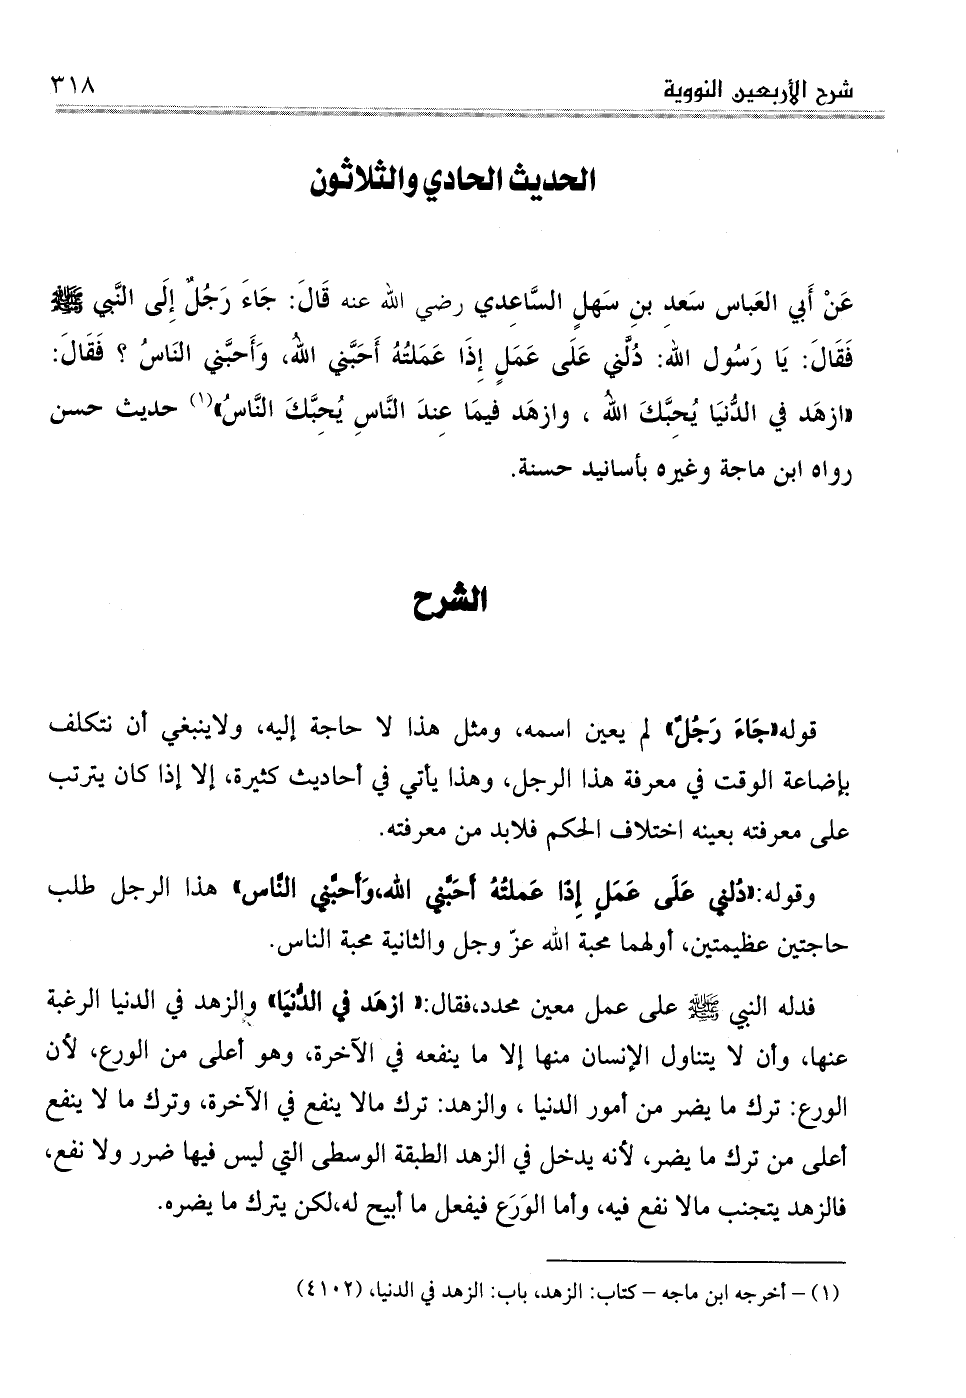 شرح الأربعين النووية
٣١٨
الحديث الحادي والثلاثون
عَنْ أَبي العَباس سَعدِ بنِ سَهلٍ السَّاعِدي رضي الله عنه قَالَ: جَاءَ رَجُلٌ إِلَى النَّبي ﷺ
فَقَالَ: يَا رَسُول الله: دُلَّني عَلَى عَمَلٍ إِذَا عَمَلتُهُ أَحَبَّني اللهُ، وَأَحبَّني النَاسُ ؟ فَقَالَ:
«ازهَد في الدُّنيَا يُحِبَّكَ اللهُ ، وازهَد فيمَا عِندَ النَّاسِ يُحِبَّكَ النَّاسُ»(١) حديث حسن
رواه ابن ماجة وغيره بأسانيد حسنة.
الشرح
قوله«جَاءَ رَجُلٌ» لم يعين اسمه، ومثل هذا لا حاجة إليه، ولاينبغي أن نتكلف
بإضاعة الوقت في معرفة هذا الرجل، وهذا يأتي في أحاديث كثيرة، إلا إذا كان يترتب
على معرفته بعينه اختلاف الحكم فلابد من معرفته.
وقوله:«دُلني عَلَى عَمَلٍ إِذَا عَملتُهُ أَحَبَّني الله،وَأَحبَّني النَّاس» هذا الرجل طلب
حاجتين عظيمتين، أولهما محبة الله عزّ وجل والثانية محبة الناس.
فدله النبي ﷺ على عمل معين محدد،فقال:« ازهَد في الدُّنيَا» والزهد في الدنيا الرغبة
عنها، وأن لا يتناول الإنسان منها إلا ما ينفعه في الآخرة، وهو أعلى من الورع، لأن
الورع: ترك ما يضر من أمور الدنيا ، والزهد: ترك مالا ينفع في الآخرة، وترك ما لا ينفع
أعلى من ترك ما يضر، لأنه يدخل في الزهد الطبقة الوسطى التي ليس فيها ضرر ولا نفع،
فالزهد يتجنب مالا نفع فيه، وأما الوَرَع فيفعل ما أبيح له،لكن يترك ما يضره.
(١) – أخرجه ابن ماجه – كتاب: الزهد، باب: الزهد في الدنيا، (٤١٠٢)